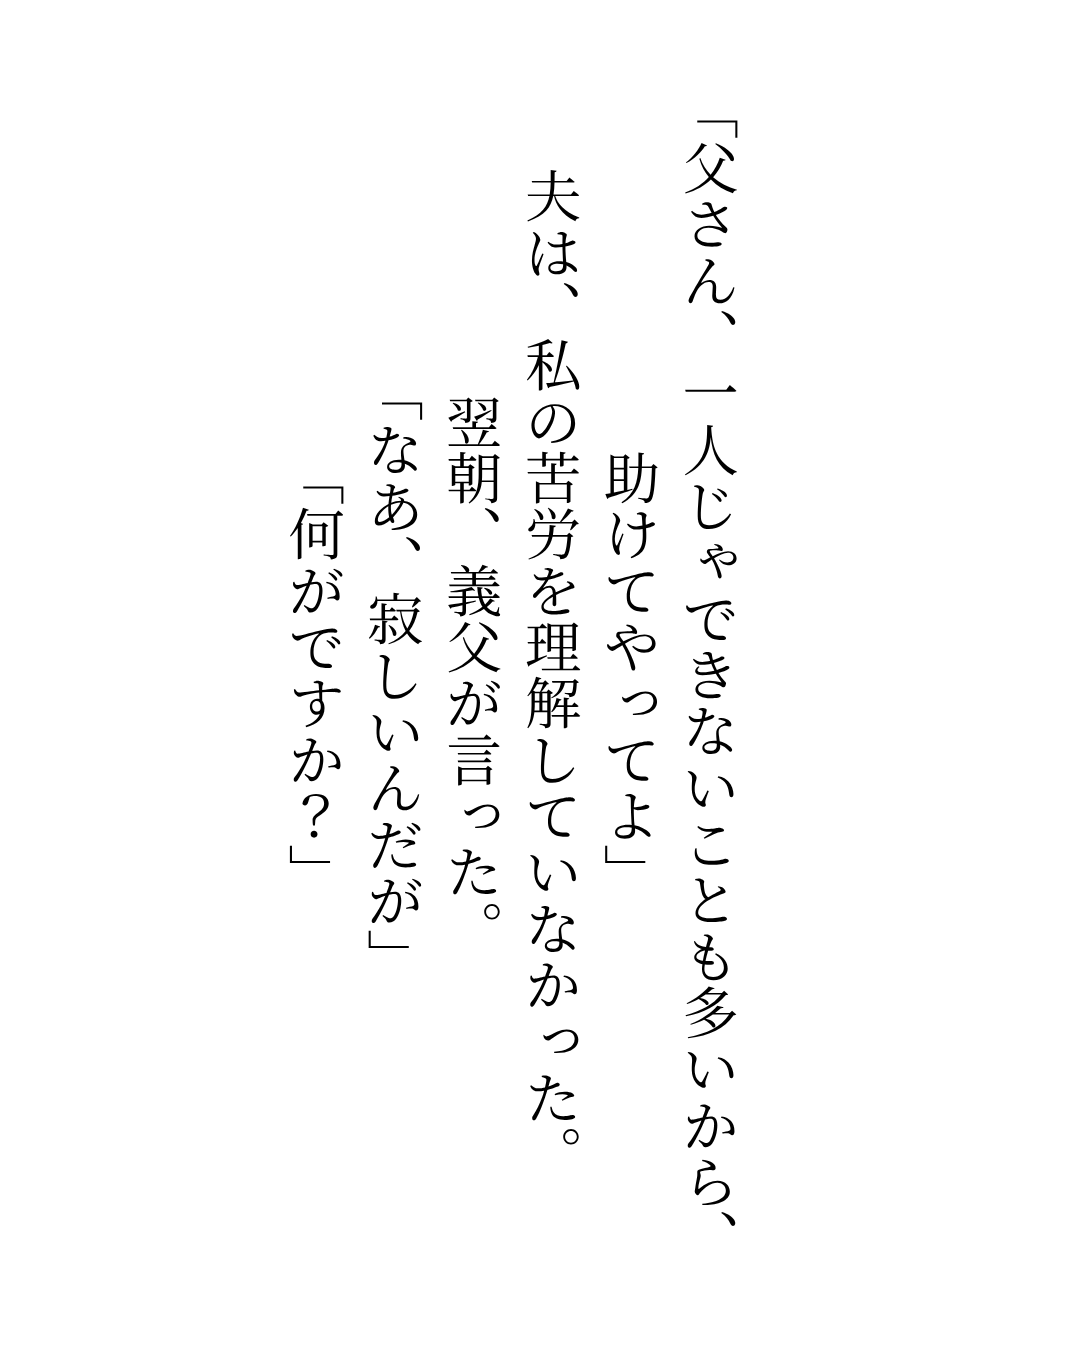 「父さん、一人じゃできないことも多いから、
助けてやってよ」
夫は、私の苦労を理解していなかった。
翌朝、義父が言った。
「なあ、寂しいんだが」
「何がですか？」